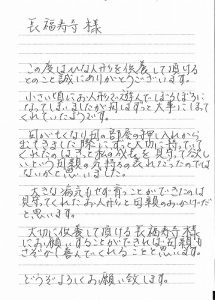 長福寿寺 様
この度はひな人形を供養して頂ける
とのこと誠にありがとうございます。
小さい頃にお人形で遊んでぼろぼろに
なってしまいましたが母はずっと大事にして
くれていたようです。
母が亡くなり母の部屋の押し入れから
出てきました際にずっと大切に持っていて
くれたのはきっと私の成長を見守って欲し
いという母親の気持ちの表れだったのでは
ないかと思いました。
大きな病気もせず育つことができたのは
見守ってくれたお人形と母親のおかげだ
と思います。
大切に供養して頂ける長福寿寺様
にお願いすることができれば母親も
さぞかし喜んでくれることと思います。
どうぞよろしくお願い致します。